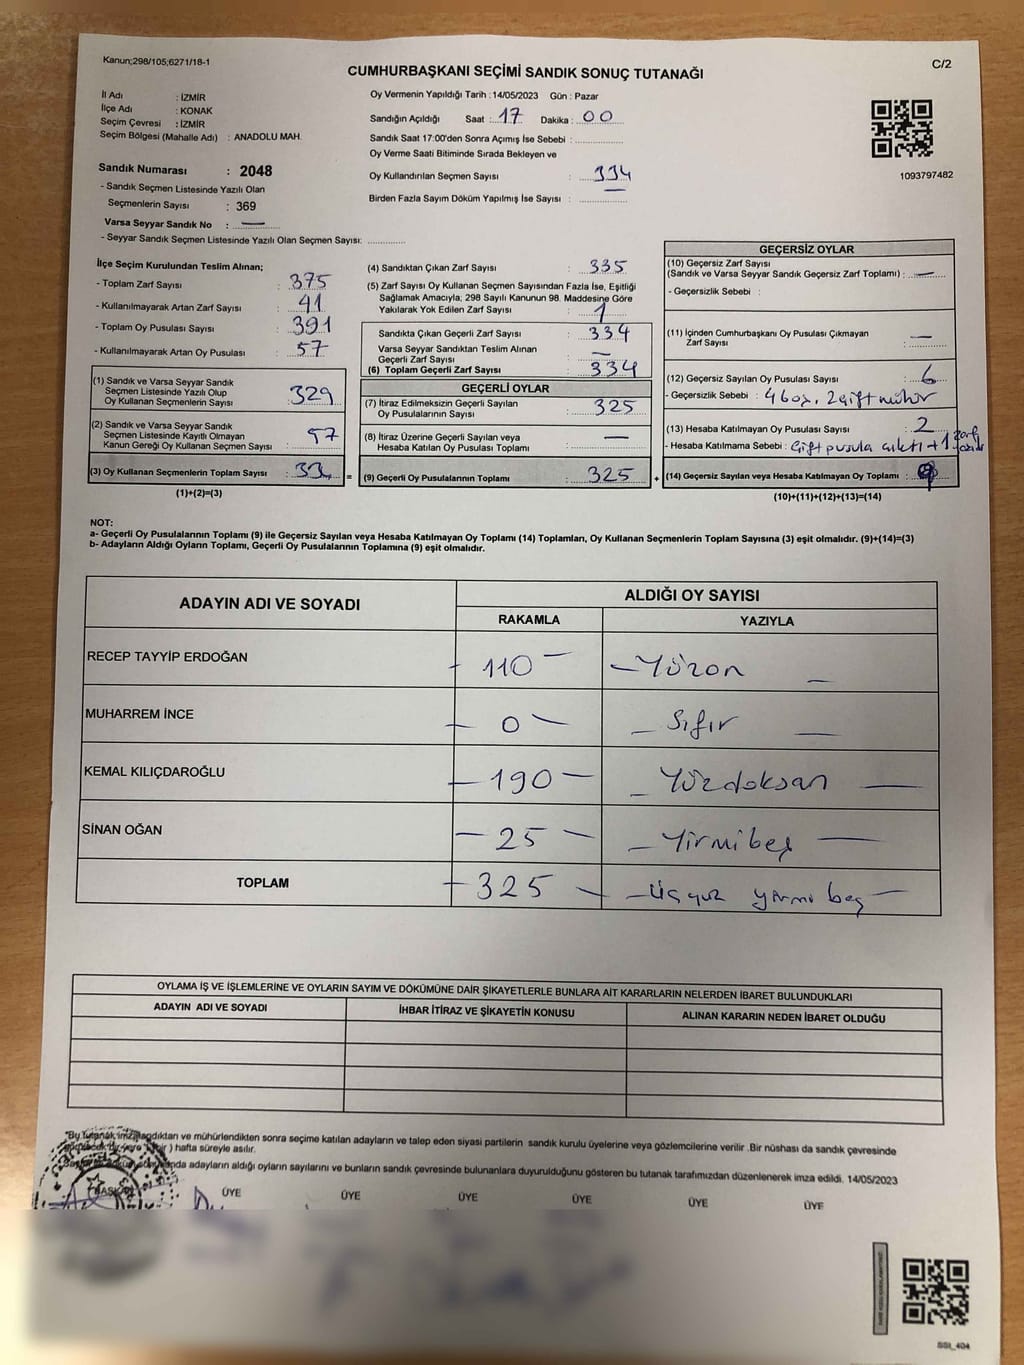 Kanun;298/105;6271/18-1
C/2
CUMHURBAŞKANI SEÇİMİ SANDIK SONUÇ TUTANAĞI
İl Adı : İZMİR
İlçe Adı : KONAK
Seçim Çevresi : İZMİR
Seçim Bölgesi (Mahalle Adı) : ANADOLU MAH.
Sandık Numarası : 2048
- Sandık Seçmen Listesinde Yazılı Olan
Seçmenlerin Sayısı : 369
Varsa Seyyar Sandık No : —
- Seyyar Sandık Seçmen Listesinde Yazılı Olan Seçmen Sayısı: ..............
Oy Vermenin Yapıldığı Tarih :14/05/2023 Gün : Pazar
Sandığın Açıldığı Saat : 17 Dakika : 00
Sandık Saat 17:00'den Sonra Açımış İse Sebebi : ..............
Oy Verme Saati Bitiminde Sırada Bekleyen ve
Oy Kullandırılan Seçmen Sayısı : 334
Birden Fazla Sayım Döküm Yapılmış İse Sayısı : —
1093797482
İlçe Seçim Kurulundan Teslim Alınan;
- Toplam Zarf Sayısı : 375
- Kullanılmayarak Artan Zarf Sayısı : 41
- Toplam Oy Pusulası Sayısı : 391
- Kullanılmayarak Artan Oy Pusulası : 57
(1) Sandık ve Varsa Seyyar Sandık
Seçmen Listesinde Yazılı Olup
Oy Kullanan Seçmenlerin Sayısı : 329
(2) Sandık ve Varsa Seyyar Sandık
Seçmen Listesinde Kayıtlı Olmayan
Kanun Gereği Oy Kullanan Seçmen Sayısı :
(3) Oy Kullanan Seçmenlerin Toplam Sayısı :
=
(1)+(2)=(3)
(4) Sandıktan Çıkan Zarf Sayısı : 335
(5) Zarf Sayısı Oy Kullanan Seçmen Sayısından Fazla İse, Eşitliği
Sağlamak Amacıyla; 298 Sayılı Kanunun 98. Maddesine Göre
Yakılarak Yok Edilen Zarf Sayısı : 1
Sandıkta Çıkan Geçerli Zarf Sayısı : 334
Varsa Seyyar Sandıktan Teslim Alınan
Geçerli Zarf Sayısı : —
(6) Toplam Geçerli Zarf Sayısı : 334
GEÇERLİ OYLAR
(7) İtiraz Edilmeksizin Geçerli Sayılan
Oy Pusulalarının Sayısı : 325
(8) İtiraz Üzerine Geçerli Sayılan veya
Hesaba Katılan Oy Pusulaları Toplamı : —
(9) Geçerli Oy Pusulalarının Toplamı : 325
+
GEÇERSİZ OYLAR
(10) Geçersiz Zarf Sayısı
(Sandık ve Varsa Seyyar Sandık Geçersiz Zarf Toplamı) : —
- Geçersizlik Sebebi :
(11) İçinden Cumhurbaşkanı Oy Pusulası Çıkmayan
Zarf Sayısı : —
(12) Geçersiz Sayılan Oy Pusulası Sayısı : 6
- Geçersizlik Sebebi : 4 boş, 2 çift mühür
(13) Hesaba Katılmayan Oy Pusulası Sayısı : 2
- Hesaba Katılmama Sebebi : Çift pusula çıktı + 1 zarf
(14) Geçersiz Sayılan veya Hesaba Katılmayan Oy Toplamı :
(10)+(11)+(12)+(13)=(14)
NOT:
a- Geçerli Oy Pusulalarının Toplamı (9) ile Geçersiz Sayılan veya Hesaba Katılmayan Oy Toplamı (14) Toplamları, Oy Kullanan Seçmenlerin Toplam Sayısına (3) eşit olmalıdır. (9)+(14)=(3)
b- Adayların Aldığı Oyların Toplamı, Geçerli Oy Pusulalarının Toplamına (9) eşit olmalıdır.
ADAYIN ADI VE SOYADI
ALDIĞI OY SAYISI
RAKAMLA YAZIYLA
RECEP TAYYİP ERDOĞAN - 110 - - Yüzon -
MUHARREM İNCE - 0 - - Sıfır -
KEMAL KILIÇDAROĞLU - 190 - - Yüzdoksan -
SİNAN OĞAN - 25 - - Yirmibeş -
TOPLAM - 325 - - Üçyüz yirmi beş -
OYLAMA İŞ VE İŞLEMLERİNE VE OYLARIN SAYIM VE DÖKÜMÜNE DAİR ŞİKAYETLERLE BUNLARA AİT KARARLARIN NELERDEN İBARET BULUNDUKLARI
ADAYIN ADI VE SOYADI İHBAR İTİRAZ VE ŞİKAYETİN KONUSU ALINAN KARARIN NEDEN İBARET OLDUĞU
"Bu tutanak imzalandıktan ve mühürlendikten sonra seçime katılan adayların ve talep eden siyasi partilerin sandık kurulu üyelerine veya gözlemcilerine verilir .Bir nüshası da sandık çevresinde
) hafta süreyle asılır.
adayların aldığı oyların sayılarını ve bunların sandık çevresinde bulunanlara duyurulduğunu gösteren bu tutanak tarafımızdan düzenlenerek imza edildi. 14/05/2023
BAŞKAN ÜYE ÜYE ÜYE ÜYE ÜYE ÜYE
SSI_404